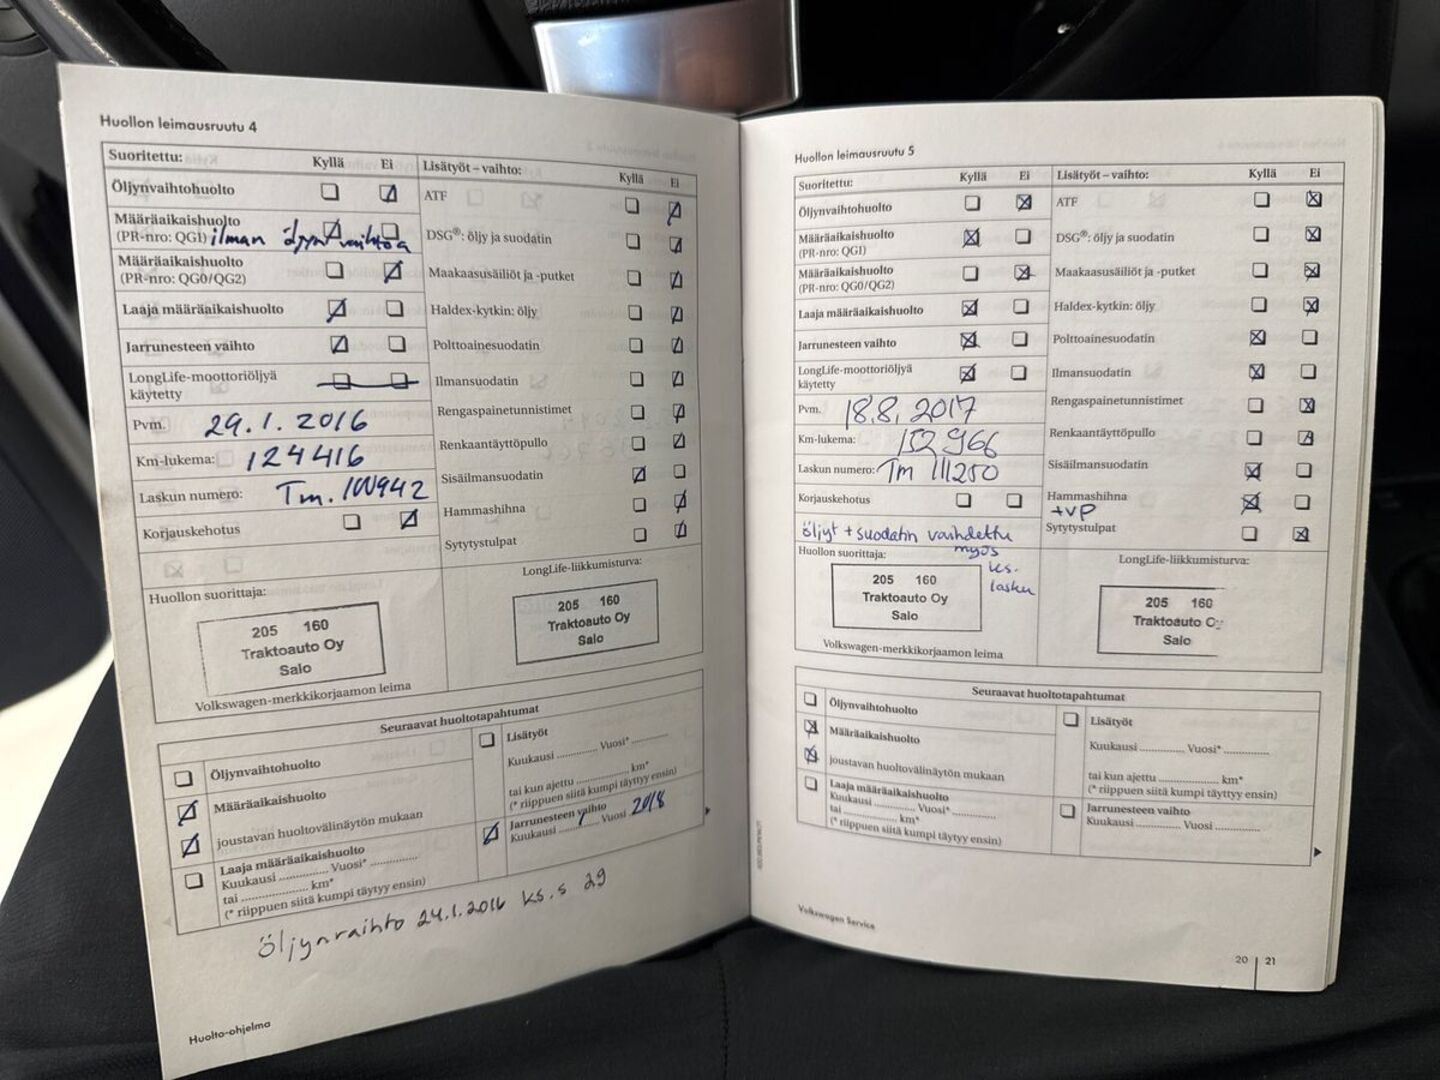 Huollon leimausruutu 4
Suoritettu: Kyllä Ei
Öljynvaihtohuolto
Määräaikaishuolto
(PR-nro: QGI) ilman öljynvaihtoa
Määräaikaishuolto
(PR-nro: QG0/QG2)
Laaja määräaikaishuolto
Jarrunesteen vaihto
LongLife-moottoriöljyä
käytetty
Pvm. 29.1.2016
Km-lukema: 124416
Laskun numero: Tm. 100942
Korjauskehotus
Huollon suorittaja:
205 160
Traktoauto Oy
Salo
Volkswagen-merkkikorjaamon leima
Lisätyöt – vaihto: Kyllä Ei
ATF
DSG®: öljy ja suodatin
Maakaasusäiliöt ja -putket
Haldex-kytkin: öljy
Polttoainesuodatin
Ilmansuodatin
Rengaspainetunnistimet
Renkaantäyttöpullo
Sisäilmansuodatin
Hammashihna
Sytytystulpat
LongLife-liikkumisturva:
205 160
Traktoauto Oy
Salo
Seuraavat huoltotapahtumat
Öljynvaihtohuolto
Määräaikaishuolto
joustavan huoltovälinäytön mukaan
Laaja määräaikaishuolto
Kuukausi ............. Vuosi* .............
tai ..................... km*
(* riippuen siitä kumpi täytyy ensin)
Lisätyöt
Kuukausi ............. Vuosi* .............
tai kun ajettu ..................... km*
(* riippuen siitä kumpi täytyy ensin)
Jarrunesteen vaihto
Kuukausi ............. Vuosi 2018
Öljynvaihto 24.1.2016 ks.s 29
Huolto-ohjelma
Huollon leimausruutu 5
Suoritettu: Kyllä Ei
Öljynvaihtohuolto
Määräaikaishuolto
(PR-nro: QGI)
Määräaikaishuolto
(PR-nro: QG0/QG2)
Laaja määräaikaishuolto
Jarrunesteen vaihto
LongLife-moottoriöljyä
käytetty
Pvm. 18.8.2017
Km-lukema: 152966
Laskun numero: Tm 111250
Korjauskehotus
öljyt + suodatin vaihdettu
myös
ks.
lasku
Huollon suorittaja:
205 160
Traktoauto Oy
Salo
Volkswagen-merkkikorjaamon leima
Lisätyöt – vaihto: Kyllä Ei
ATF
DSG®: öljy ja suodatin
Maakaasusäiliöt ja -putket
Haldex-kytkin: öljy
Polttoainesuodatin
Ilmansuodatin
Rengaspainetunnistimet
Renkaantäyttöpullo
Sisäilmansuodatin
Hammashihna
+VP
Sytytystulpat
LongLife-liikkumisturva:
205 160
Traktoauto Oy
Salo
Seuraavat huoltotapahtumat
Öljynvaihtohuolto
Määräaikaishuolto
joustavan huoltovälinäytön mukaan
Laaja määräaikaishuolto
Kuukausi ............. Vuosi* .............
tai ..................... km*
(* riippuen siitä kumpi täytyy ensin)
Lisätyöt
Kuukausi ............. Vuosi* .............
tai kun ajettu ..................... km*
(* riippuen siitä kumpi täytyy ensin)
Jarrunesteen vaihto
Kuukausi ............. Vuosi .............
Volkswagen Service
20 | 21